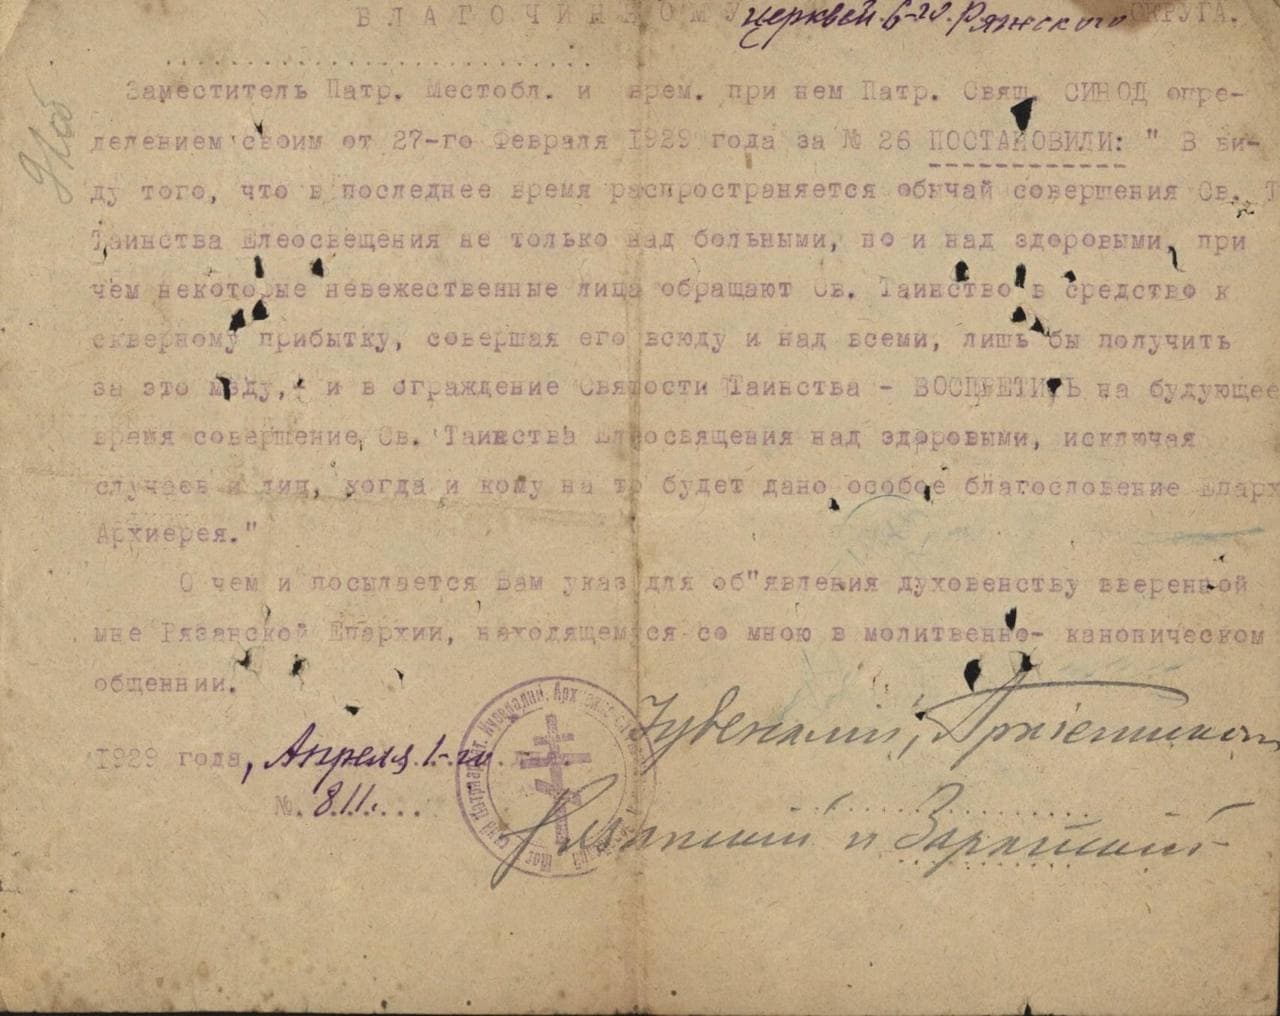 БЛАГОЧИННОМУ церквей 6-го Ряжского ОКРУГА.
Заместитель Патр. Местобл. и врем. при нем Патр. Свящ. СИНОД опре-
делением своим от 27-го Февраля 1929 года за № 26 ПОСТАНОВИЛИ: " В ви-
ду того, что в последнее время распространяется обычай совершения Св. Т
Таинства Елеосвещения не только над больными, но и над здоровыми, при
чем некоторые невежественные лица обращают Св. Таинство в средство к
скверному прибытку, совершая его всюду и над всеми, лишь бы получить
за это мзду, и в ограждение Святости Таинства - ВОСПРЕТИТЬ на будующее
время совершение Св. Таинства Елеосвящения над здоровыми, исключая
случаев и лиц, когда и кому на то будет дано особое благословение Епарх
Архиерея."
О чем и посылается Вам указ для об"явления духовенству вверенной
мне Рязанской Епархии, находящемуся со мною в молитвенно- каноническом
общеннии.
Ювеналий, Архиепископ
1929 года, Апреля 1-го.
№. 811.
Рязанский и Зарайский